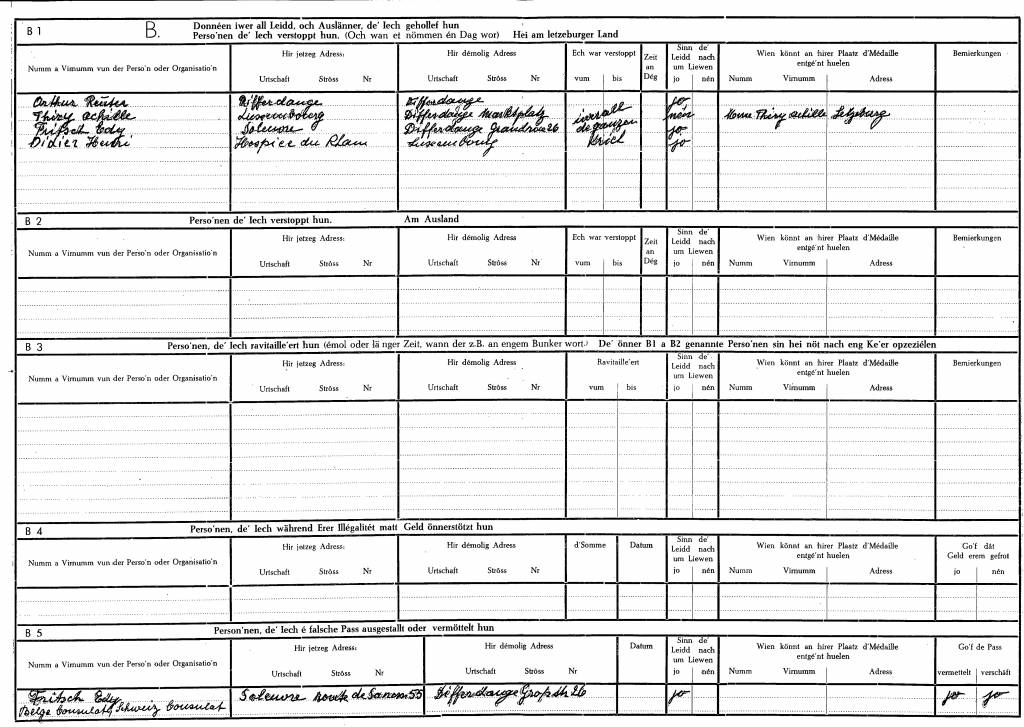 B 1 B. Donnéen iwer all Leidd, och Auslänner, de' Iech gehollef hun
Perso'nen de' Iech verstoppt hun. (Och wan et nömmen én Dag wor) Hei am letzeburger Land
Numm a Virnumm vun der Perso'n oder Organisatio'n
Hir jetzeg Adress:
Urtschaft Ströss Nr
Hir démolig Adress:
Urtschaft Ströss Nr
Ech war verstoppt
vum bis
Zeit an Dég
Sinn de' Leidd nach um Liewen
jo nén
Wien könnt an hirer Plaatz d'Médaille entgé'nt huelen
Numm Virnumm Adress
Bemierkungen
Arthur Reuter Differdange Differdange jo
Thiry Achille Luxembourg Differdange Marktplatz iwerall nén Thiry Achille Letzeburg
Fritsch Edy Soleuvre Differdange Grandrue 26 de ganzen jo
Didier Henri Hospice du Rham Luxembourg Krich jo
B 2 Perso'nen de' Iech verstoppt hun. Am Ausland
Numm a Virnumm vun der Perso'n oder Organisatio'n
Hir jetzeg Adress:
Urtschaft Ströss Nr
Hir démolig Adress
Urtschaft Ströss Nr
Ech war verstoppt
vum bis
Zeit an Dég
Sinn de' Leidd nach um Liewen
jo nén
Wien könnt an hirer Plaatz d'Médaille entgé'nt huelen
Numm Virnumm Adress
Bemierkungen
B 3 Perso'nen, de' Iech ravitaille'ert hun (émol oder länger Zeit, wann der z.B. an engem Bunker wort.) De' önner B1 a B2 genannte Perso'nen sin hei nöt nach eng Ke'er opzeziélen
Numm a Virnumm vun der Perso'n oder Organisatio'n
Hir jetzeg Adress:
Urtschaft Ströss Nr
Hir démolig Adress
Urtschaft Ströss Nr
Ravitaille'ert
vum bis
Sinn de' Leidd nach um Liewen
jo nén
Wien könnt an hirer Plaatz d'Médaille entgé'nt huelen
Numm Virnumm Adress
Bemierkungen
B 4 Perso'nen, de' Iech während Erer Illégalitét matt Geld önnerstötzt hun
Numm a Virnumm vun der Perso'n oder Organisatio'n
Hir jetzeg Adress:
Urtschaft Ströss Nr
Hir démolig Adress
Urtschaft Ströss Nr
d'Somme
Datum
Sinn de' Leidd nach um Liewen
jo nén
Wien könnt an hirer Plaatz d'Médaille entgé'nt huelen
Numm Virnumm Adress
Go'f dât Geld erem gefrot
jo nén
B 5 Person'nen, de' Iech é falsche Pass ausgestallt oder vermöttelt hun
Numm a Virnumm vun der Perso'n oder Organisatio'n
Hir jetzeg Adress:
Urtschaft Ströss Nr
Hir démolig Adress
Urtschaft Ströss Nr
Datum
Sinn de' Leidd nach um Liewen
jo nén
Wien könnt an hirer Plaatz d'Médaille entgé'nt huelen
Numm Virnumm Adress
Go'f de Pass
vermettelt verschäft
Fritsch Edy Soleuvre route de Sanem 55 Differdange Großstr 26 jo jo jo
Belge Consulat, Schweiz Consulat